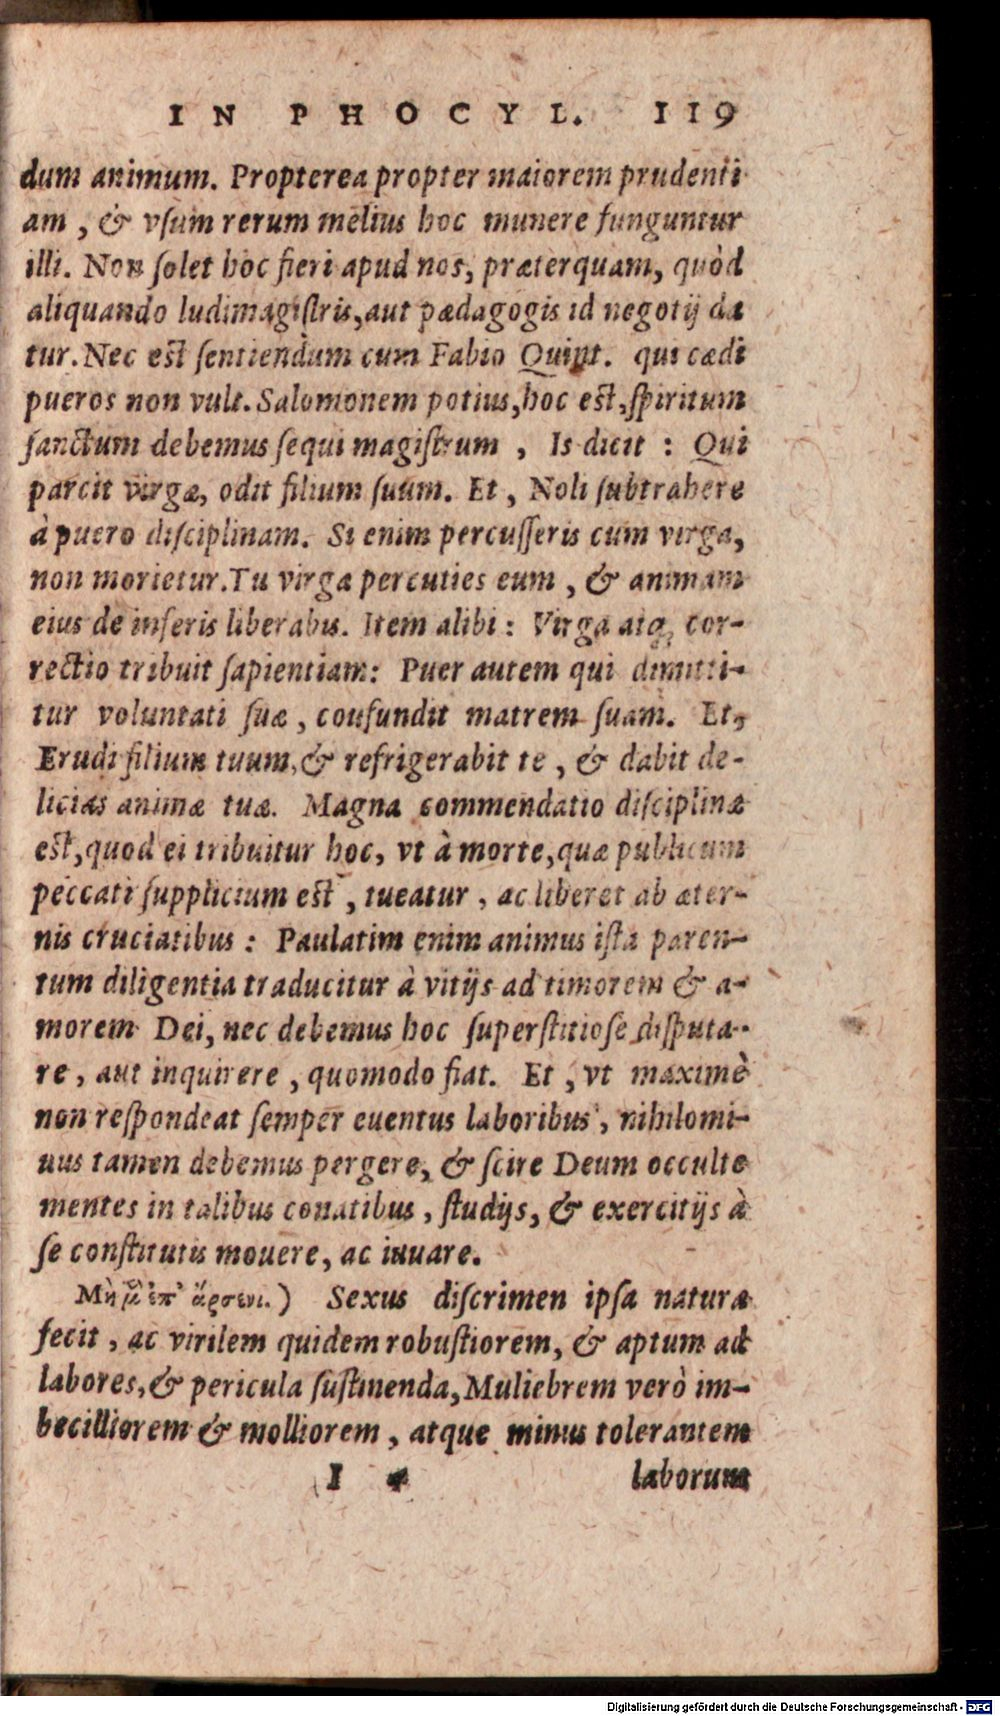 IN PHOCYL. 119
dum animum. Propterea propter maiorem prudenti
am, & vſum rerum melius hoc munere funguntur
illi. Non ſolet hoc fieri apud nos, præterquam, quòd
aliquando ludimagiſtris, aut pædagogis id negotij da
tur. Nec eſt ſentiendum cum Fabio Quint. qui cædi
pueros non vult. Salomonem potius, hoc eſt, ſpiritum
ſanctum debemus ſequi magiſtrum, Is dicit: Qui
parcit virgæ, odit filium ſuum. Et, Noli ſubtrahere
à puero diſciplinam. Si enim percuſſeris cum virga,
non morietur. Tu virga percuties eum, & animam
eius de inferis liberabis. Item alibi: Virga atq; cor-
rectio tribuit ſapientiam: Puer autem qui dimitti-
tur voluntati ſuæ, confundit matrem ſuam. Et,
Erudi filium tuum, & refrigerabit te, & dabit de-
licias animæ tuæ. Magna commendatio diſciplinæ
eſt, quod ei tribuitur hoc, vt à morte, quæ publicum
peccati ſupplicium eſt, tueatur, ac liberet ab æter-
nis cruciatibus: Paulatim enim animus iſta paren-
tum diligentia traducitur à vitijs ad timorem & a-
morem Dei, nec debemus hoc ſuperſtitioſe diſputa-
re, aut inquirere, quomodo fiat. Et, vt maximè
non reſpondeat ſemper euentus laboribus, nihilomi-
nus tamen debemus pergere, & ſcire Deum occulte
mentes in talibus conatibus, ſtudijs, & exercitijs à
ſe conſtitutis mouere, ac iuuare.
Μὴ μὲν ἐπ' ἄρσενι.) Sexus diſcrimen ipſa natura
fecit, ac virilem quidem robuſtiorem, & aptum ad
labores, & pericula ſuſtinenda, Muliebrem verò im-
becilliorem & molliorem, atque minus tolerantem
I laborum
Digitalisierung gefördert durch die Deutsche Forschungsgemeinschaft - DFG